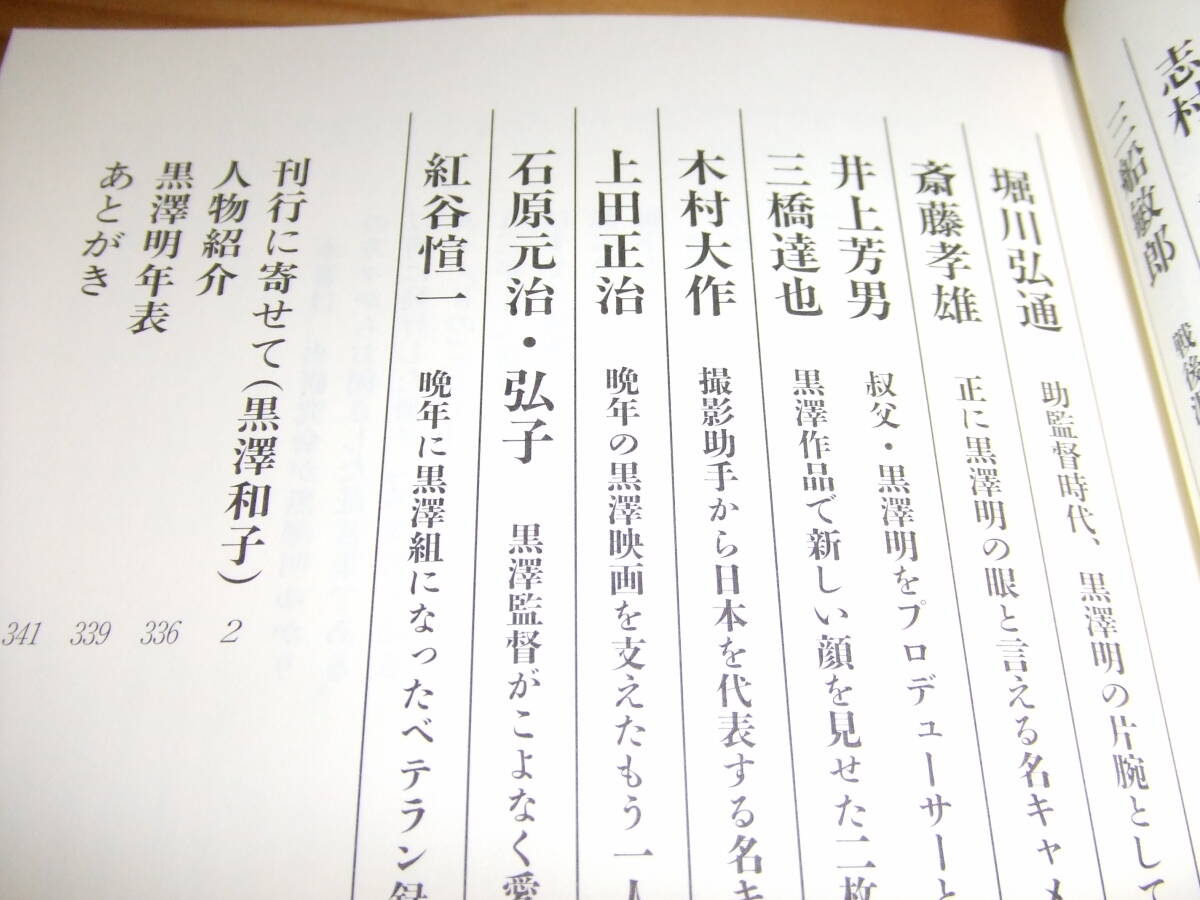 志村
三船敏郎 戦後派
堀川弘通 助監督時代、黒澤明の片腕として
斎藤孝雄 正に黒澤明の眼と言える名キャメ
井上芳男 叔父・黒澤明をプロデューサーと
三橋達也 黒澤作品で新しい顔を見せた二枚
木村大作 撮影助手から日本を代表する名キ
上田正治 晩年の黒澤映画を支えたもう一人
石原元治・弘子 黒澤監督がこよなく愛
紅谷愃一 晩年に黒澤組になったベテラン録
刊行に寄せて(黒澤和子) 2
人物紹介 336
黒澤明年表 339
あとがき 341